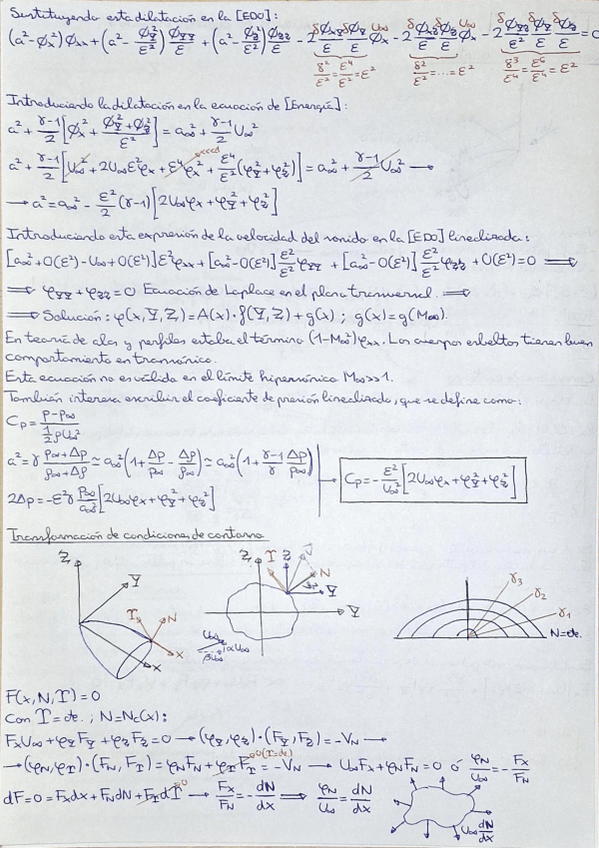 Sustituyendo esta dilatación en la [EDO]:
(a²-ϕx²)ϕxx + (a² - ϕY²/ε²) ϕYY/ε² + (a² - ϕZ²/ε²) ϕZZ/ε² - 2 ϕxY/ε ϕY/ε ϕx - 2 ϕxZ/ε ϕZ/ε ϕx - 2 ϕYZ/ε² ϕY/ε ϕZ/ε = 0
Introduciendo la dilatación en la ecuación de [Energía]:
a² + (γ-1)/2 [ϕx² + (ϕY²+ϕZ²)/ε²] = a∞² + (γ-1)/2 U∞²
a² + (γ-1)/2 [U∞² + 2U∞ε²φx + ε⁴φx² + ε⁴/ε² (φY²+φZ²)] = a∞² + (γ-1)/2 U∞² →
→ a² = a∞² - ε²/2 (γ-1) [2U∞φx + φY² + φZ²]
Introduciendo esta expresión de la velocidad del sonido en la [EDO] linealizada:
[a∞² + O(ε²) - U∞ + O(ε²)] ε²φxx + [a∞² - O(ε²)] ε²/ε² φYY + [a∞² - O(ε²)] ε²/ε² φZZ + O(ε²) = 0 ⟹
⟹ φYY + φZZ = 0 Ecuación de Laplace en el plano transversal. ⟹
⟹ Solución: φ(x,Y,Z) = A(x)·f(Y,Z) + g(x) ; g(x) = g(M∞).
En teoría de alas y perfiles estaba el término (1-M∞²)φxx. Los cuerpos esbeltos tienen buen
comportamiento en transónico.
Esta ecuación no es válida en el límite hipersónico M∞>>1.
También interesa escribir el coeficiente de presión linealizado, que se define como:
Cp = (p-p∞)/(½ρU∞²)
a² = γ (p∞+Δp)/(ρ∞+Δρ) ≃ a∞² (1 + Δp/p∞ - Δρ/ρ∞) ≃ a∞² (1 + (γ-1)/γ Δp/p∞)
Cp = - ε²/U∞² [2U∞φx + φY² + φZ²]
2Δp = -ε²γ p∞/a∞² [2U∞φx + φY² + φZ²]
Transformación de condiciones de contorno
Z Y T N x x
Z T Z N Y Y
U∞ αU∞ βU∞
γ3 γ2 γ1
N=cte.
F(x,N,T) = 0
Con T = cte. ; N = Nc(x):
FxU∞ + φYFY + φZFZ = 0 → (φY,φZ)·(FY,FZ) = -VN →
→ (φN,φT)·(FN,FT) = φNFN + φTFT = -VN → U∞Fx + φNFN = 0 ó φN/U∞ = - Fx/FN
0 (T=cte)
dF = 0 = Fxdx + FNdN + FTdT → Fx/FN = - dN/dx ⟹ φN/U∞ = dN/dx
U∞ dN/dx